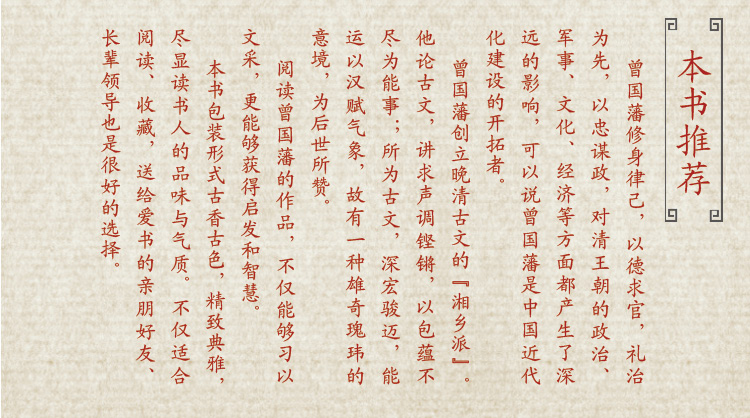 本书推荐
曾国藩修身律己，以德求官，礼治
为先，以忠谋政，对清王朝的政治、
军事、文化、经济等方面都产生了深
远的影响，可以说曾国藩是中国近代
化建设的开拓者。
曾国藩创立晚清古文的『湘乡派』。
他论古文，讲求声调铿锵，以包蕴不
尽为能事；所为古文，深宏骏迈，能
运以汉赋气象，故有一种雄奇瑰玮的
意境，为后世所赞。
阅读曾国藩的作品，不仅能够习以
文采，更能够获得启发和智慧。
本书包装形式古香古色，精致典雅，
尽显读书人的品味与气质。不仅适合
阅读、收藏，送给爱书的亲朋好友、
长辈领导也是很好的选择。